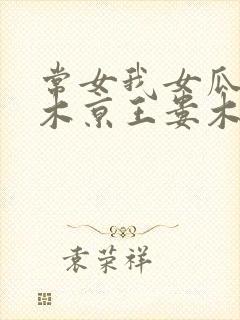 常女我女瓜
木京王娄木
袁荣祥